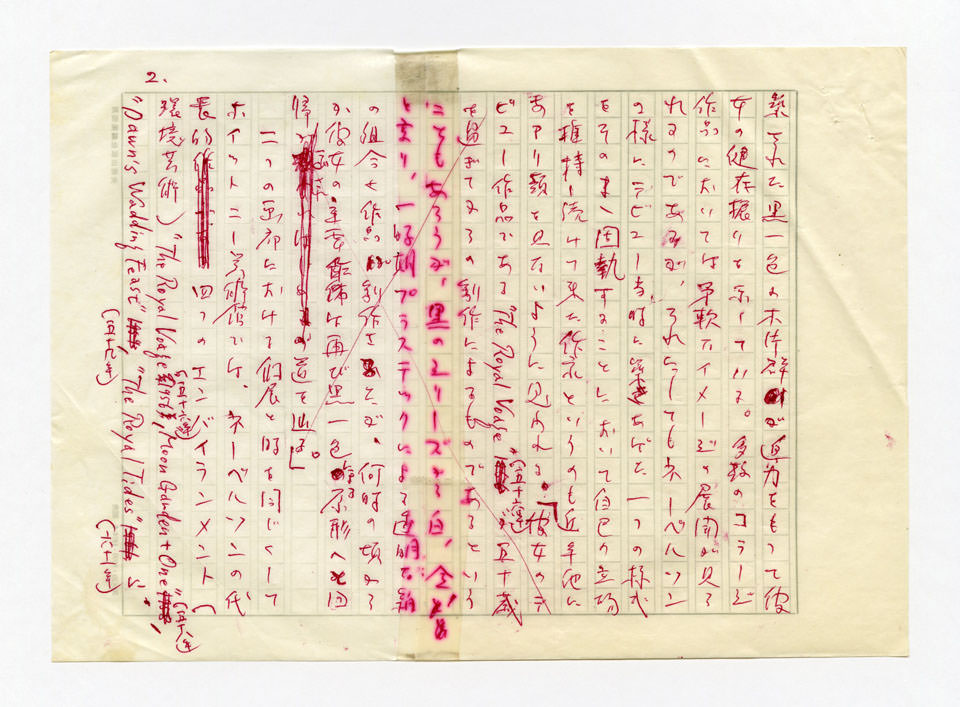 2.
築かれた黒一色の木片群が迫力をもって彼
女の健在振りを示している。多数のコラージ
作品においては柔軟なイメージの展開が見ら
れるのであるが、それにしてもネーベルソン
の様にデビュー当時に築きあげた一つの様式
をそのまゝ固執することにおいて自己の立場
を維持し続けて来た作家というのも近年他に
あまり類を見ないように思われる。彼女のデ
ビュー作品である "The Royal Vodge" (五十六年) が五十歳
を過ぎてからの制作によるものであるという
こともあろうが、黒のシリーズから白、金と
なり、一時期プラスティックによる透明な
の組合せ作品が制作されたが、何時の頃から
か彼女の は再び黒一色の原形へと回
帰 道を辿る。
二つの画廊における個展と時を同じくして
ホイットニー美術館では、ネーベルソンの代
表的 四つのエンバイランメント (
環境芸術) "The Royal Vodge (五十六年), Moon Garden + One" (五十八年)
"Dawn's Wadding Feast" (五十九年), "The Royal Tides" (六十一年)